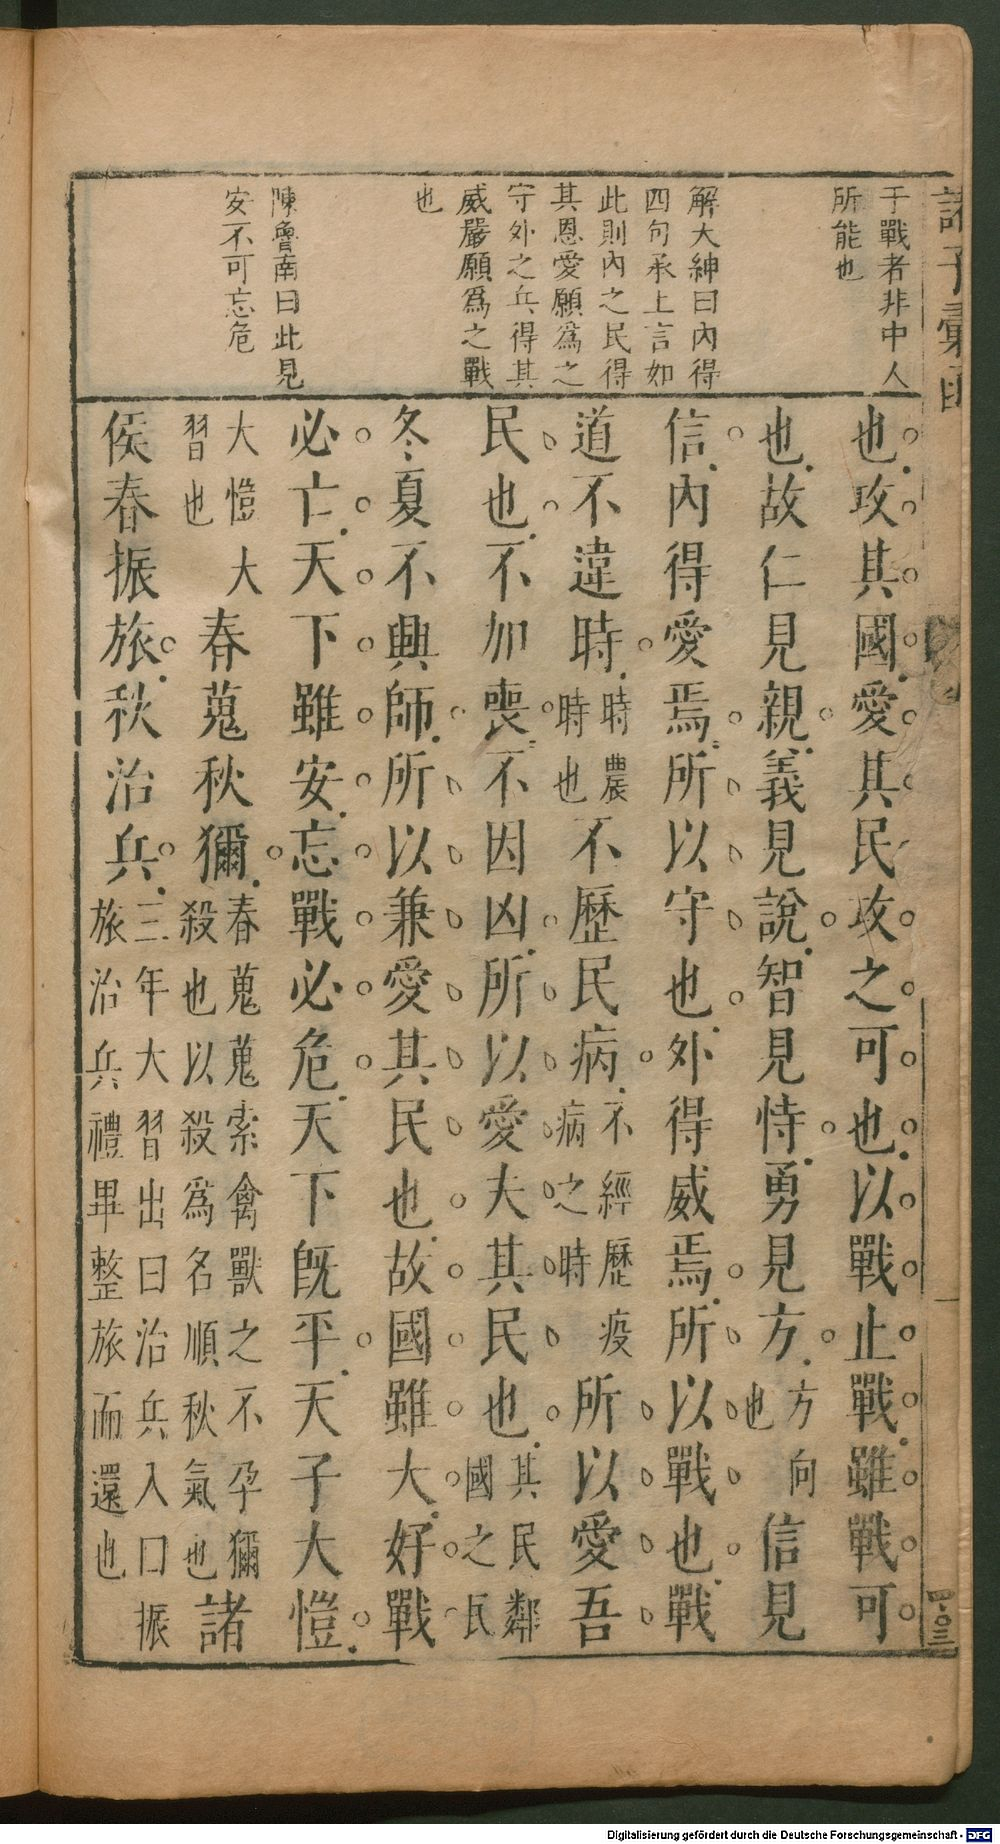 諸子彙函
于戰者非中人
所能也
解大紳曰內得
四句承上言如
此則內之民得
其恩愛願爲之
守外之兵得其
威嚴願爲之戰
也
陳魯南曰此見
安不可忘危
也攻其國愛其民攻之可也以戰止戰雖戰可
也故仁見親義見說智見恃勇見方方向也信見
信內得愛焉所以守也外得威焉所以戰也戰
道不違時時農時也不歷民病不經歷疫病之時所以愛吾
民也不加喪不因凶所以愛夫其民也其民鄰國之民
冬夏不興師所以兼愛其民也故國雖大好戰
必亡天下雖安忘戰必危天下旣平天子大愷
大愷大習也春蒐秋獮春蒐蒐索禽獸之不孕獮殺也以殺爲名順秋氣也諸
侯春振旅秋治兵三年大習出曰治兵入曰振旅治兵禮畢整旅而還也
四〇三
Digitalisierung gefördert durch die Deutsche Forschungsgemeinschaft - DFG